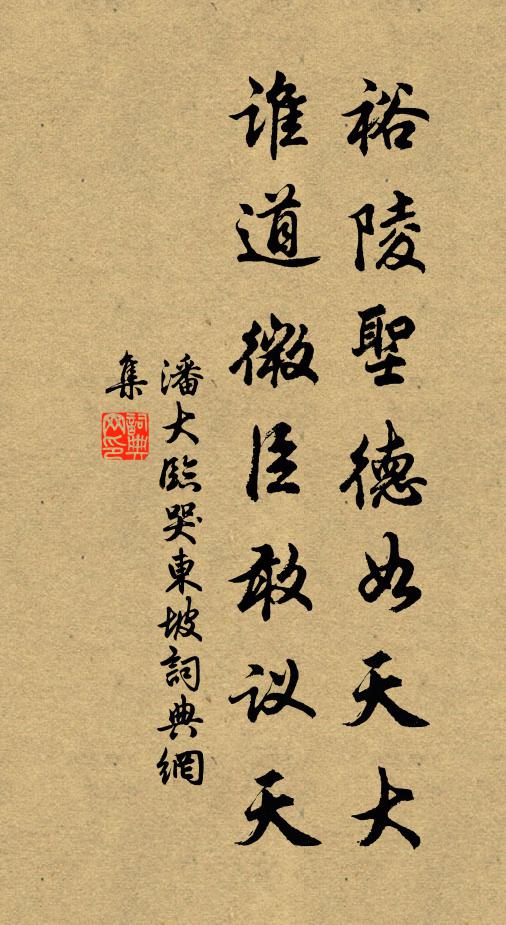 裕陵聖德如天大
誰道微臣敢议天
潘大臨哭東坡詞典網
集
詞典
网印